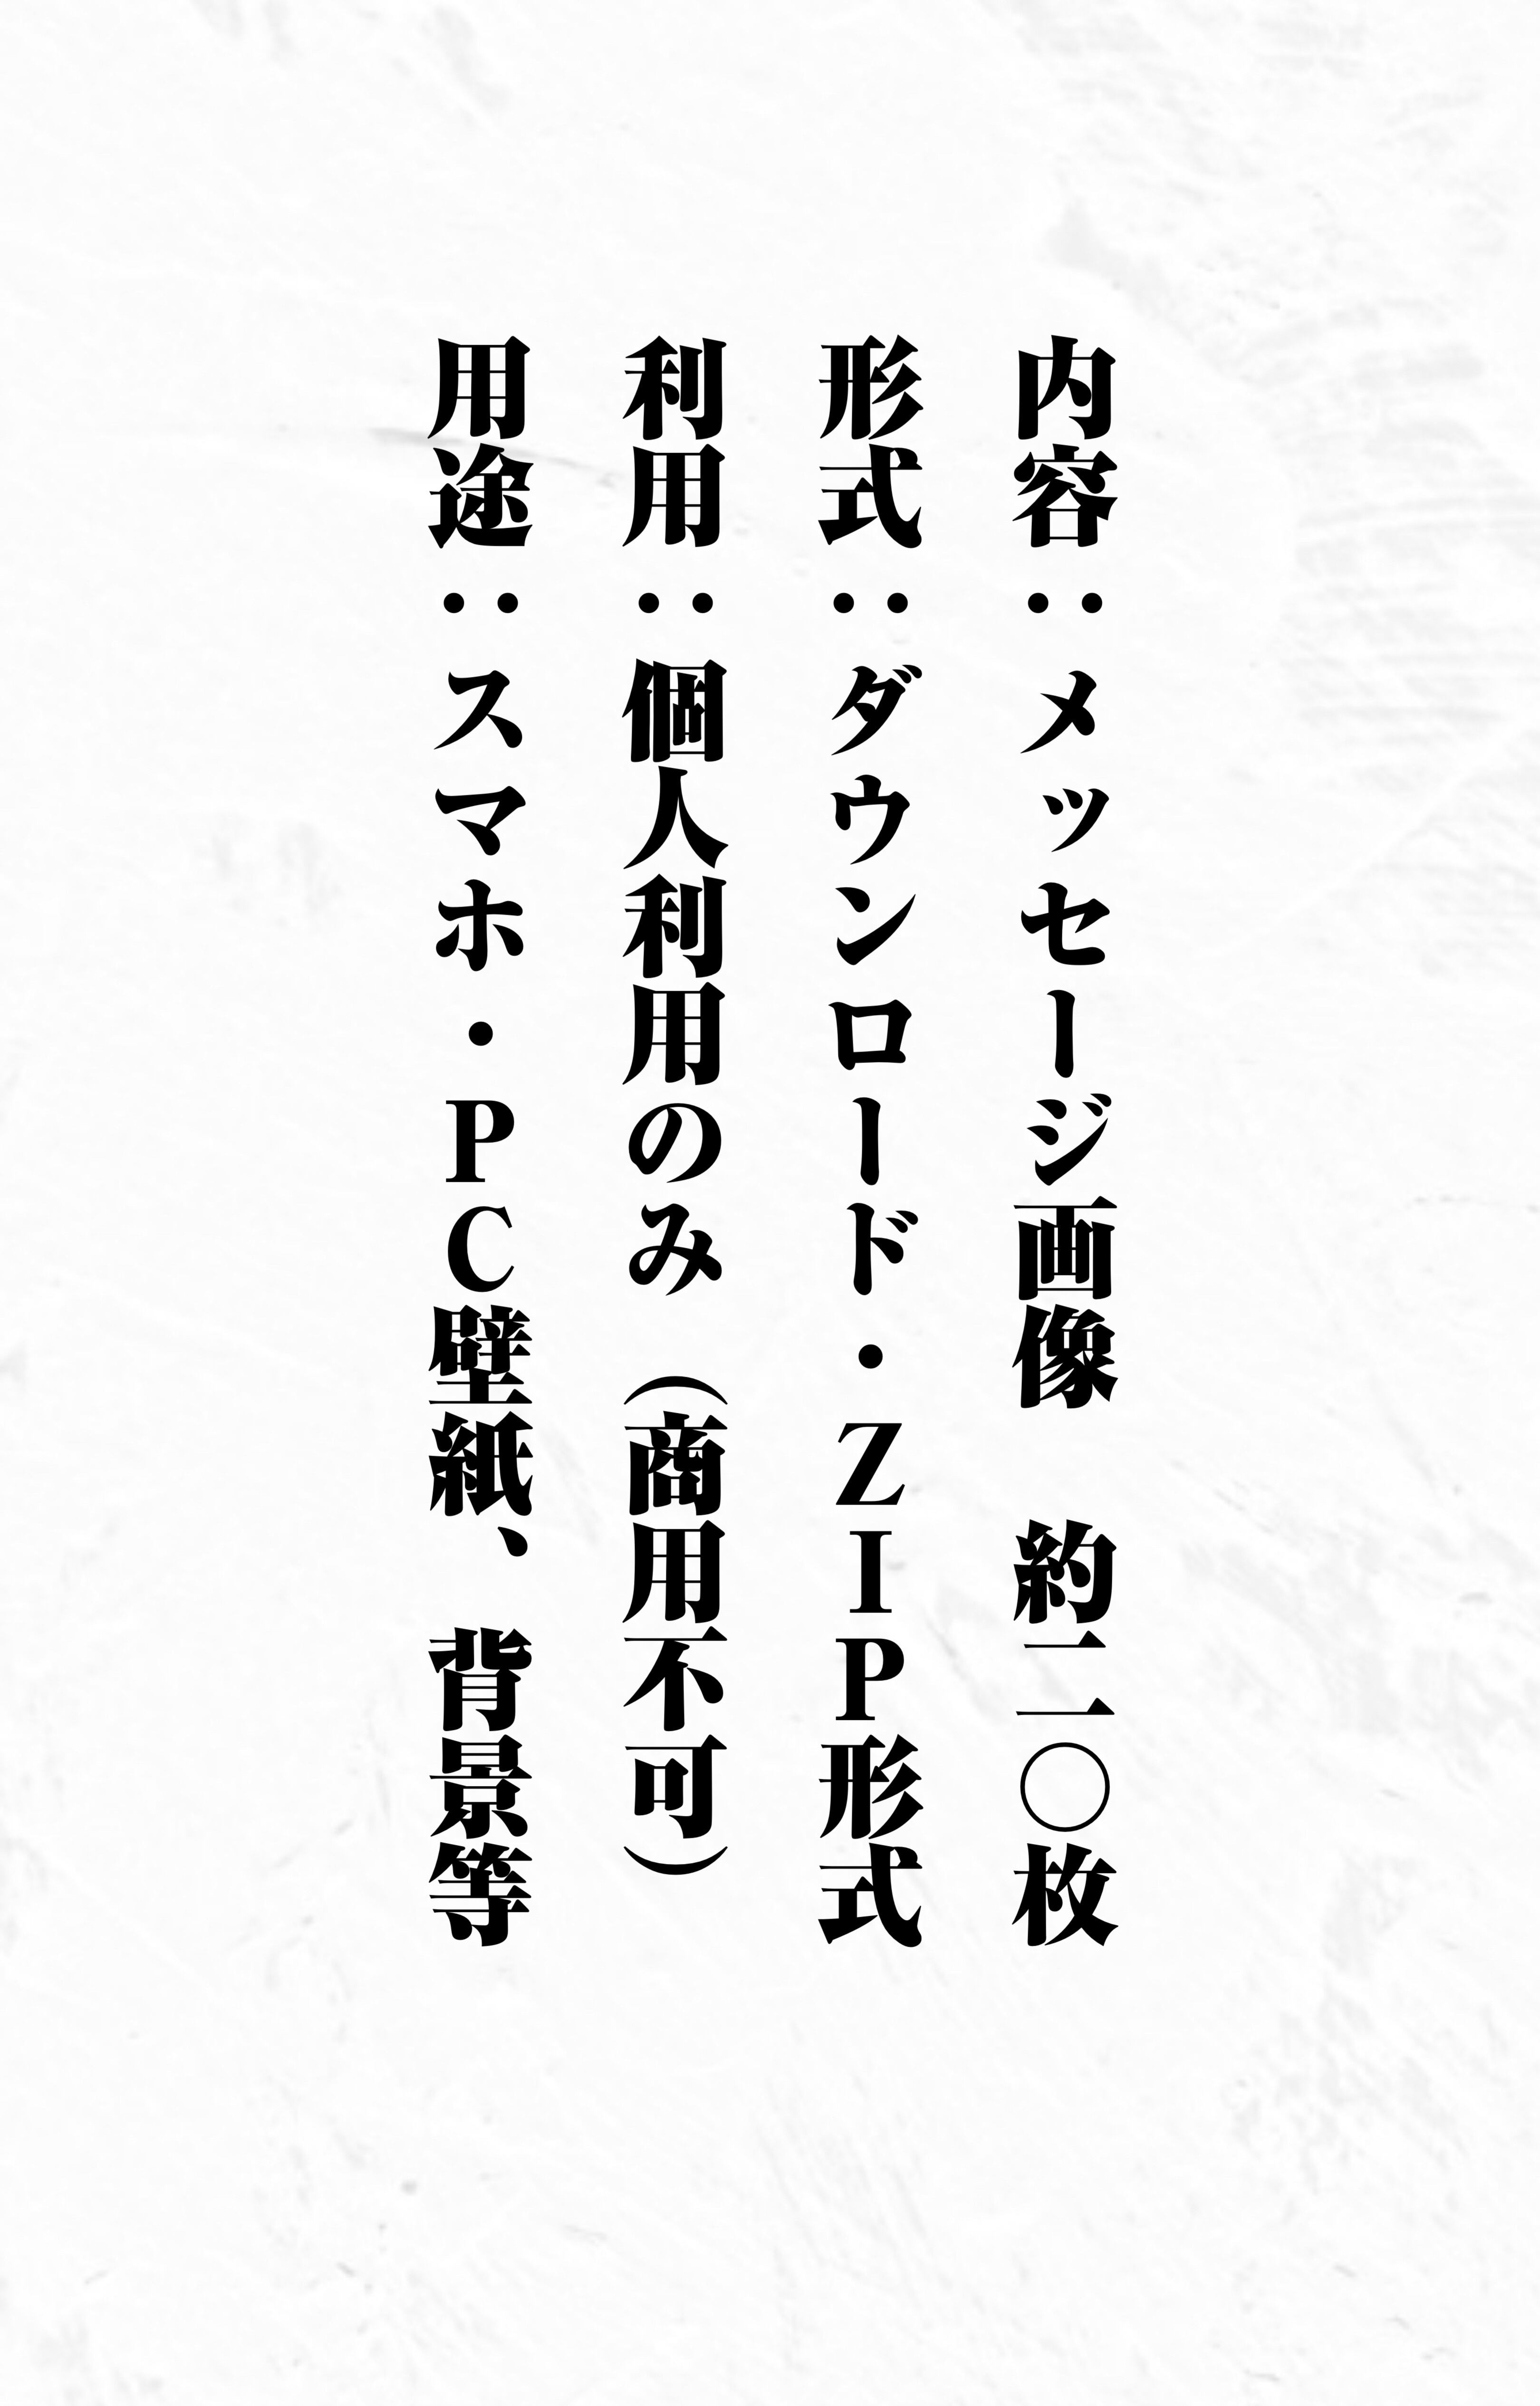 内容：メッセージ画像　約二〇枚
形式：ダウンロード・ZIP形式
利用：個人利用のみ（商用不可）
用途：スマホ・PC壁紙、背景等